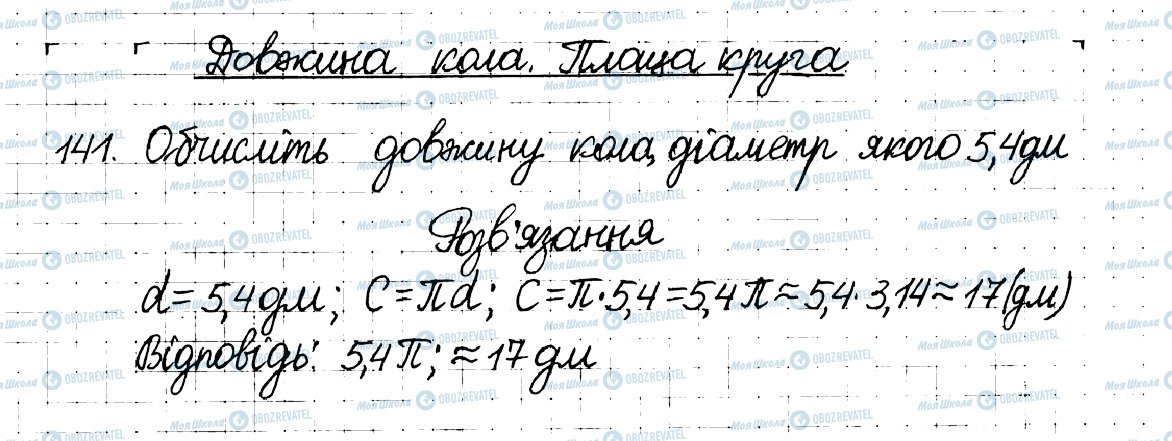 Довжина кола. Площа круга
141. Обчисліть довжину кола, діаметр якого 5,4дм
Розв'язання
d = 5,4дм; C = πd; C = π·5,4 = 5,4π ≈ 5,4·3,14 ≈ 17(дм)
Відповідь: 5,4π; ≈ 17 дм